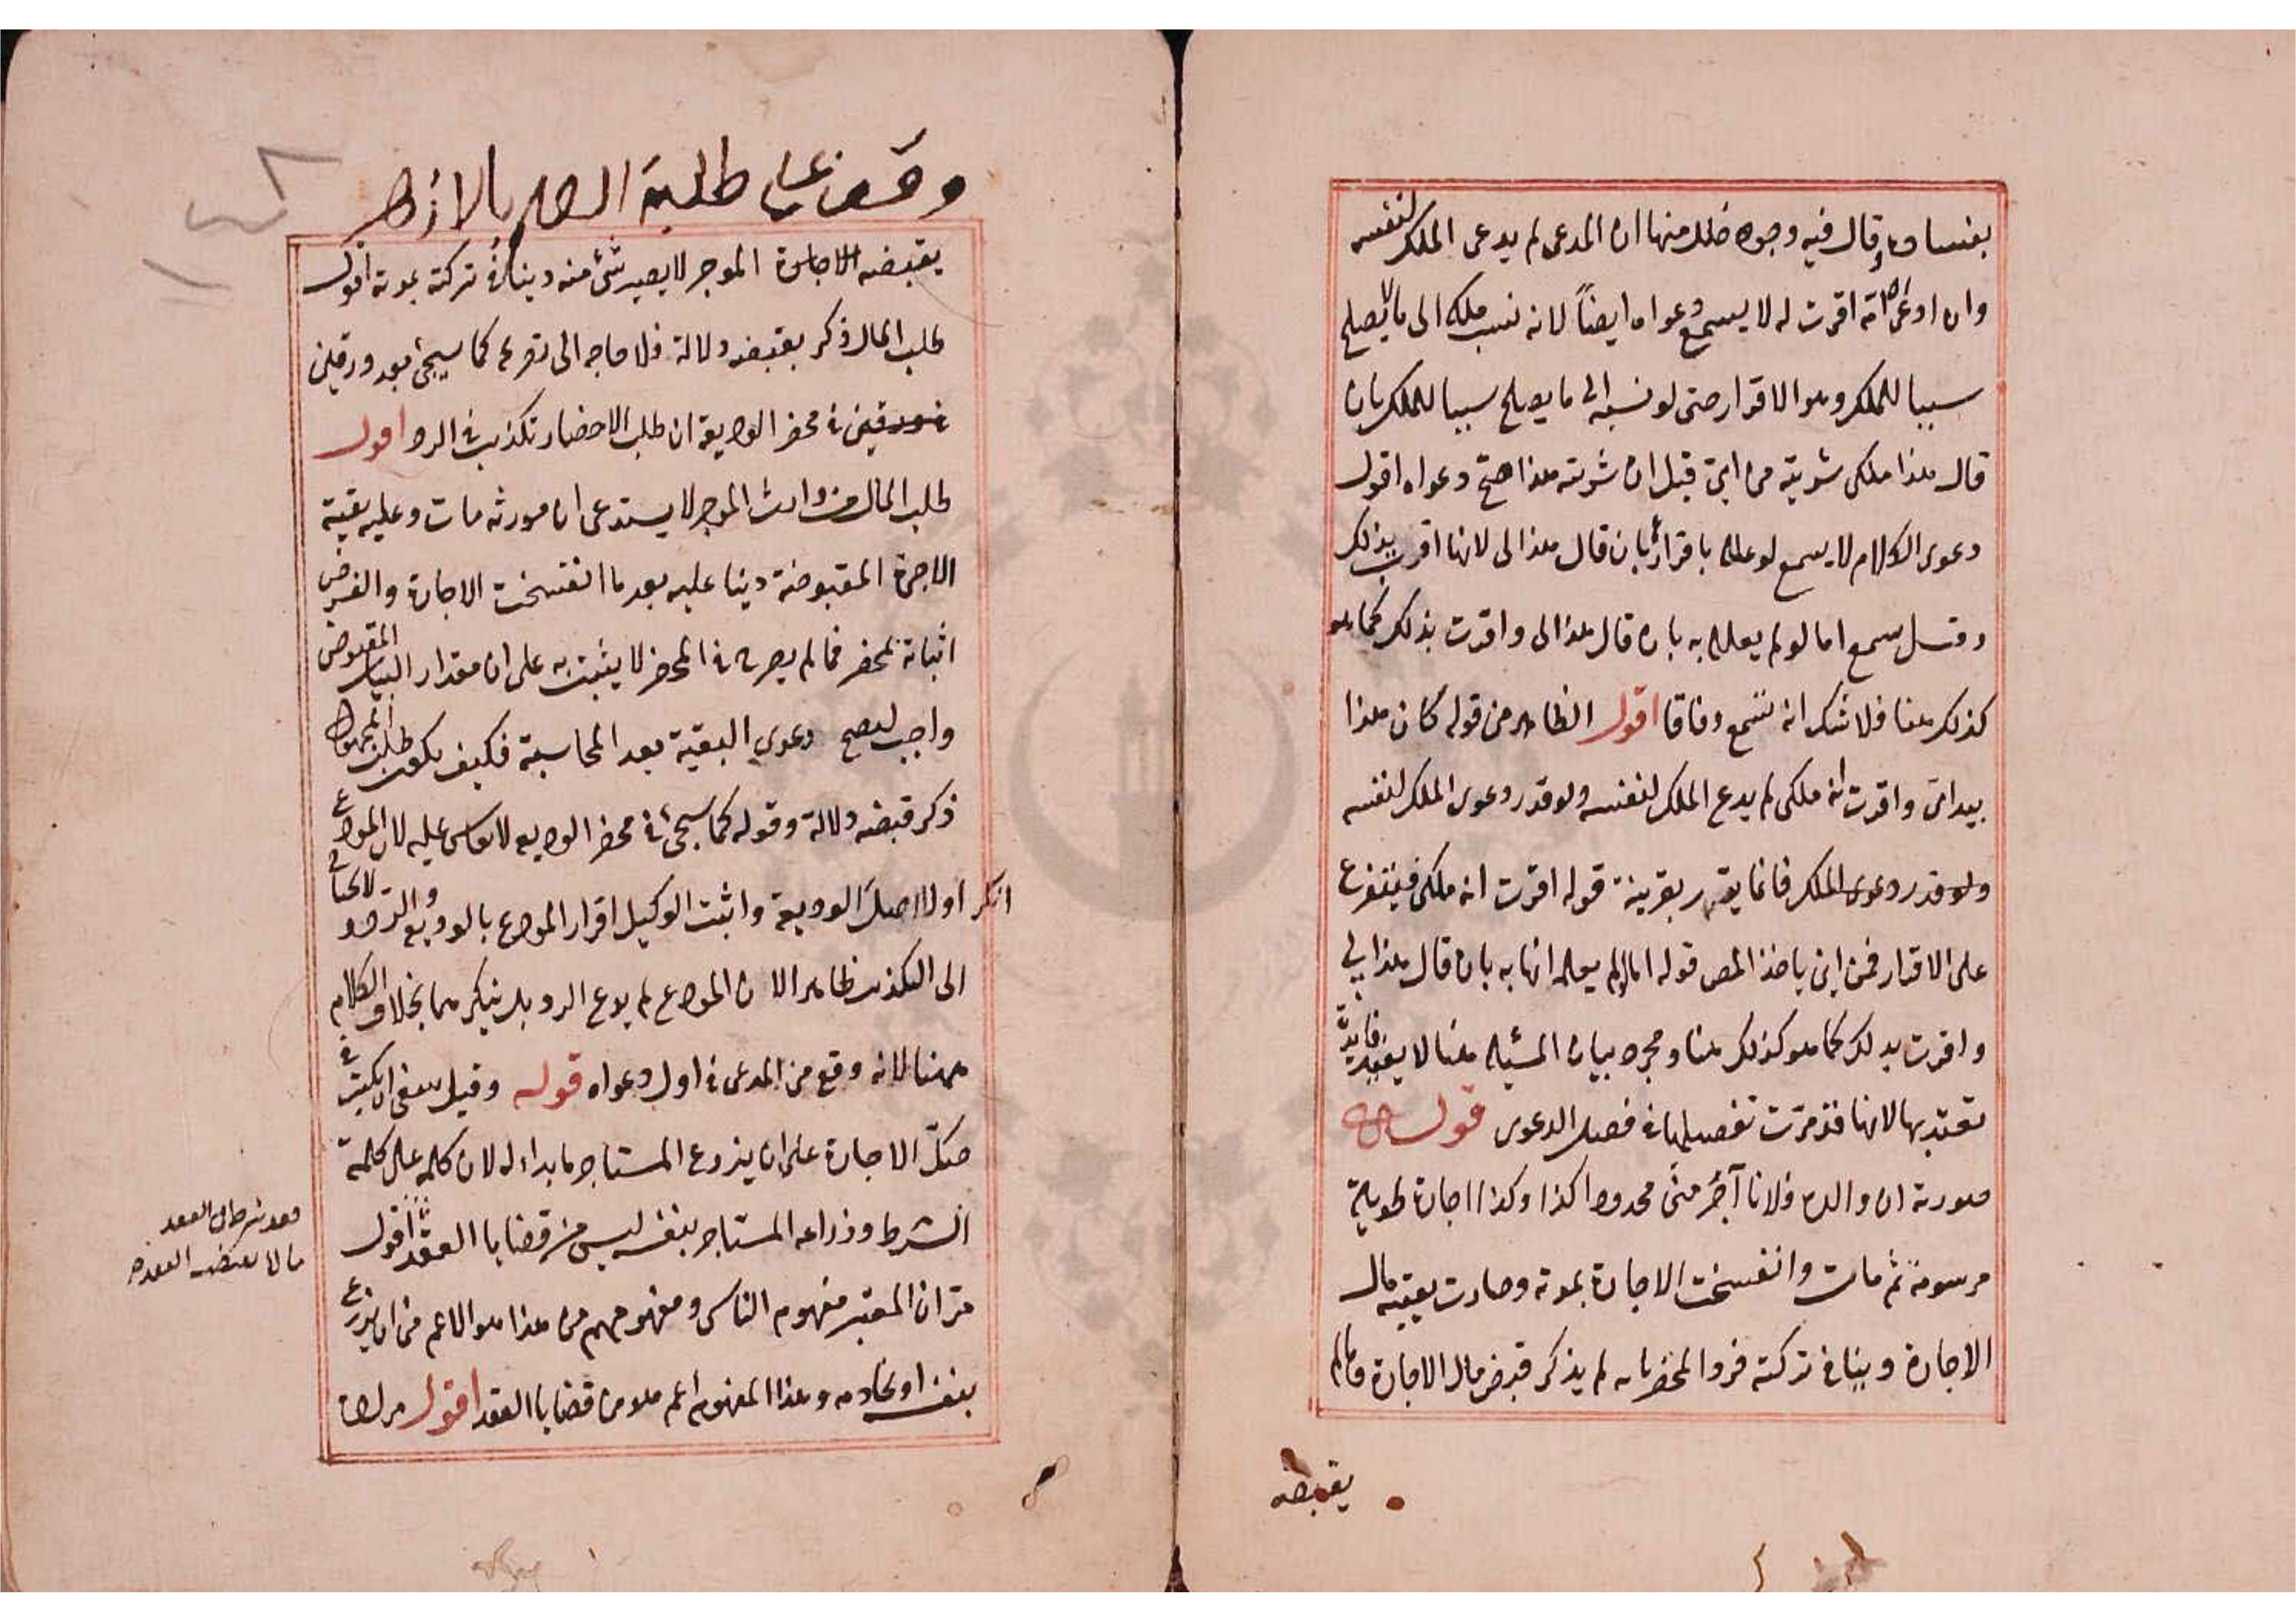 بفساده وقال فيه وجوه خلل منها ان المدعى لم يدعى الملك لنفسه
وان ادعى انه اقرت له لا يسمع دعواه ايضاً لانه نسب ملكه الى ما لا يصلح
سببا للملك وهو الاقرار حتى لو نسبه الى ما يصلح سببا للملك بان
قال هذا ملكى شريته من امى قبل ان شريته هذا صح دعواه اقول
دعوى الكلام لا يسمع لو علله باقرارها بان قال هذا لى لانها اقرت بذلك
وقيل يسمع اما لو لم يعلله به بان قال هذا لى واقرت بذلك كما هو
كذلك هنا فلا شك انه تسمع وفاقا اقول الظاهر من قوله كان هذا
بيد امى واقرت انه ملكى لم يدع الملك لنفسه ولو قدر دعوى الملك لنفسه
ولو قدر دعوى الملك فانما يقدر بقرينة قوله اقرت انه ملكى فيتفرع
على الاقرار فمن اين ياخذ المص قوله اما لو لم يعلله به بان قال هذا لى
واقرت بذلك كما هو كذلك هنا ومجرد بيان المسئلة هنا لا يفيد فايدة
تعتد بها لانها قد مرت تفصيلها فى فصل الدعوى قوله
صورته ان والد فلانا آجر منى محدودا كذا وكذا اجارة طويلة
مرسومة ثم مات وانفسخت الاجارة بموته وصارت بقية مال
الاجارة دينا فى تركته فردوا المحضر بانه لم يذكر قبض مال الاجارة وما لم
يقبضه
وقف على طلبة العلم بالازهر
يقبضه الاجارة الموجر لا يصير شئ منه دينا فى تركته بموته اقول
طلب المال ذكر بقبضه دلالة فلا حاجه الى تصريحه كما سيجئ بعد ورقين
فى محضر الوديعة ان طلب الاحضار تكذيب فى الرد اقول
طلب المال من وارث الموجر لا يستدعى ان مورثه مات وعليه بقية
الاجرة المقبوضة دينا عليه بعد ما انفسخت الاجارة والغرض
اثباته بمحضر فما لم يصرح فى المحضر لا يثبت به على ان مقدار المقبوض
واجب ليصح دعوى البقية بعد المحاسبة فكيف يكون طلب المجهول
ذكر قبضه دلالة وقوله كما سيجئ فى محضر الوديعه لا يقاس عليه لان المودع
انكر اولا اصل الوديعة واثبت الوكيل اقرار المودع بالوديع والرد
الى التكذيب ظاهر الان المودع لم يدع الرد بل ينكرهما بخلاف الكلام
ههنا لانه وقع من المدعى فى اول دعواه قوله وقيل ينبغى ان يكتب فى
صك الاجارة على ان يزرع المستاجر ما بدا له لان كلمه على كلمة
الشرط وزراعه المستاجر بنفسه ليس من قضايا العقد اقول
مر ان المعتبر مفهوم الناس ومفهومهم من هذا هو الاعم من ان يزرع
بنفسه او بخادمه وهذا المفهوم اعم هو من قضايا العقد اقول
فقد شرطا فى العقد
ما لا يقتضيه العقد